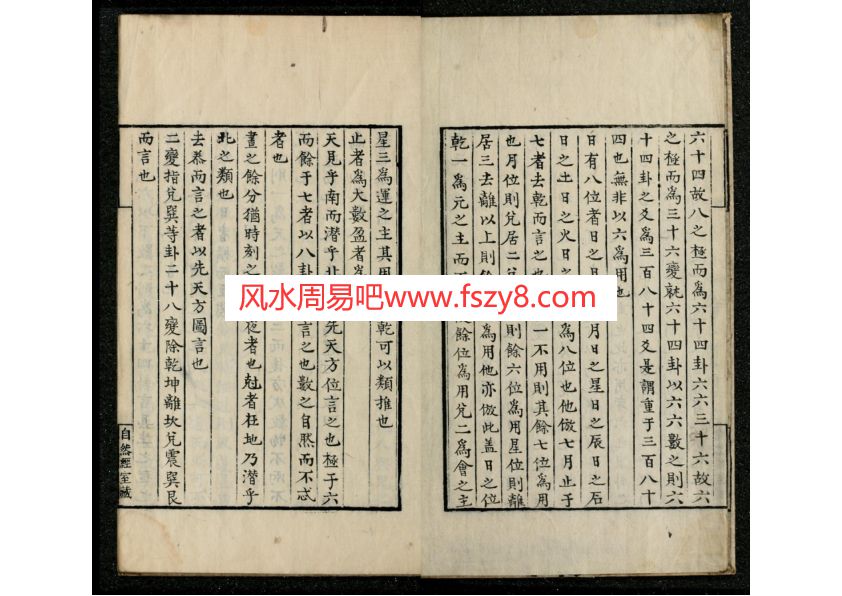 六十四故八之極而爲六十四卦六六三十六故六
之極而爲三十六變就六十四卦以六六數之則六
十四卦之爻爲三百八十四爻是謂重于三百八十
四也無非以六爲用也
日有八位者日之日月日之星日之辰日之石
日之土日之火日爲八位也他倣七月止于
七者去乾而言之也一不用則其餘七位爲用
也月位則兌居二則餘六位爲用星位則離
居三去離以上則餘爲用他亦倣此蓋日之位
乾一爲元之主而餘位爲用兌二爲會之主
星三爲運之主其用乾可以類推也
止者爲大數盈者
天見乎南而潛乎北先天方位言之也極于六
而餘于七者以八卦言之也數之自然而不忒
者也
晝之餘分猶時刻之夜者也尅者在地乃潛乎
北之類也
去叅而言之者以先天方圖言也
二變指兌巽等卦二十八變除乾坤離坎兌震巽艮
而言也
自然經室藏
风水周易吧www.fszy8.com